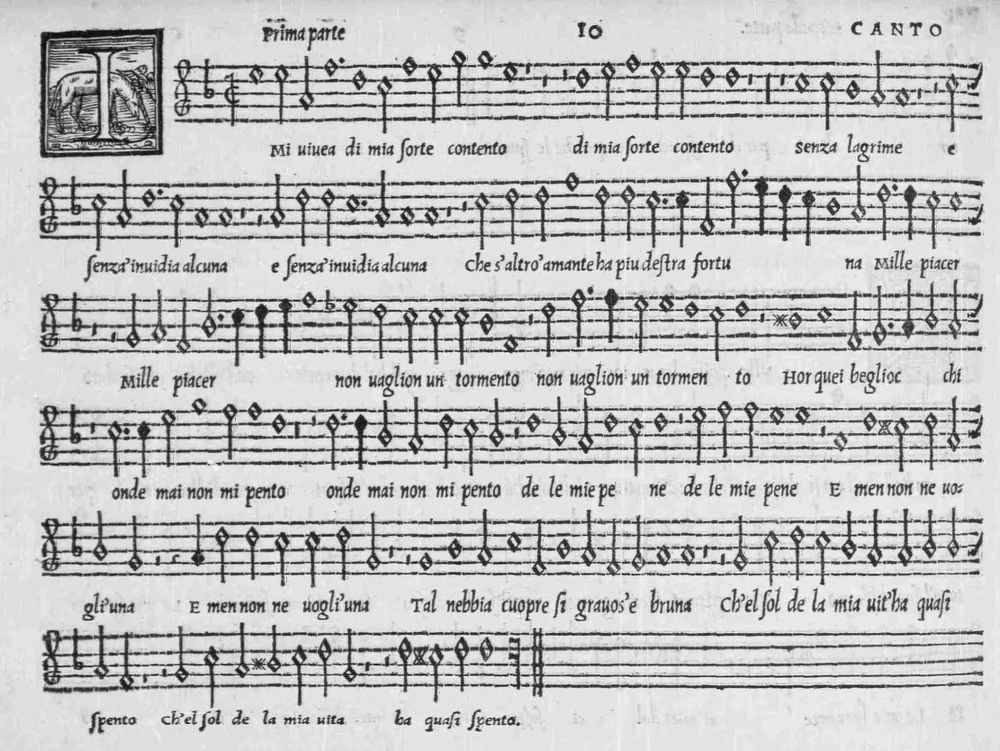 Prima parte 10 CANTO
I Mi uiuea di mia ſorte contento di mia ſorte contento ſenza lagrime e
ſenza'inuidia alcuna e ſenza'inuidia alcuna Che s'altro'amante ha piu deſtra fortu na Mille piacer
Mille piacer non uaglion un tormento non uaglion un tormen to Hor quei beglioc chi
onde mai non mi pento onde mai non mi pento de le mie pe ne de le mie pene E men non ne uo-
gli'una E men non ne uogli'una Tal nebbia cuopre ſi grauos'e bruna Ch'el ſol de la mia uit'ha quaſi
ſpento Ch'el ſol de la mia uita ha quaſi ſpento.